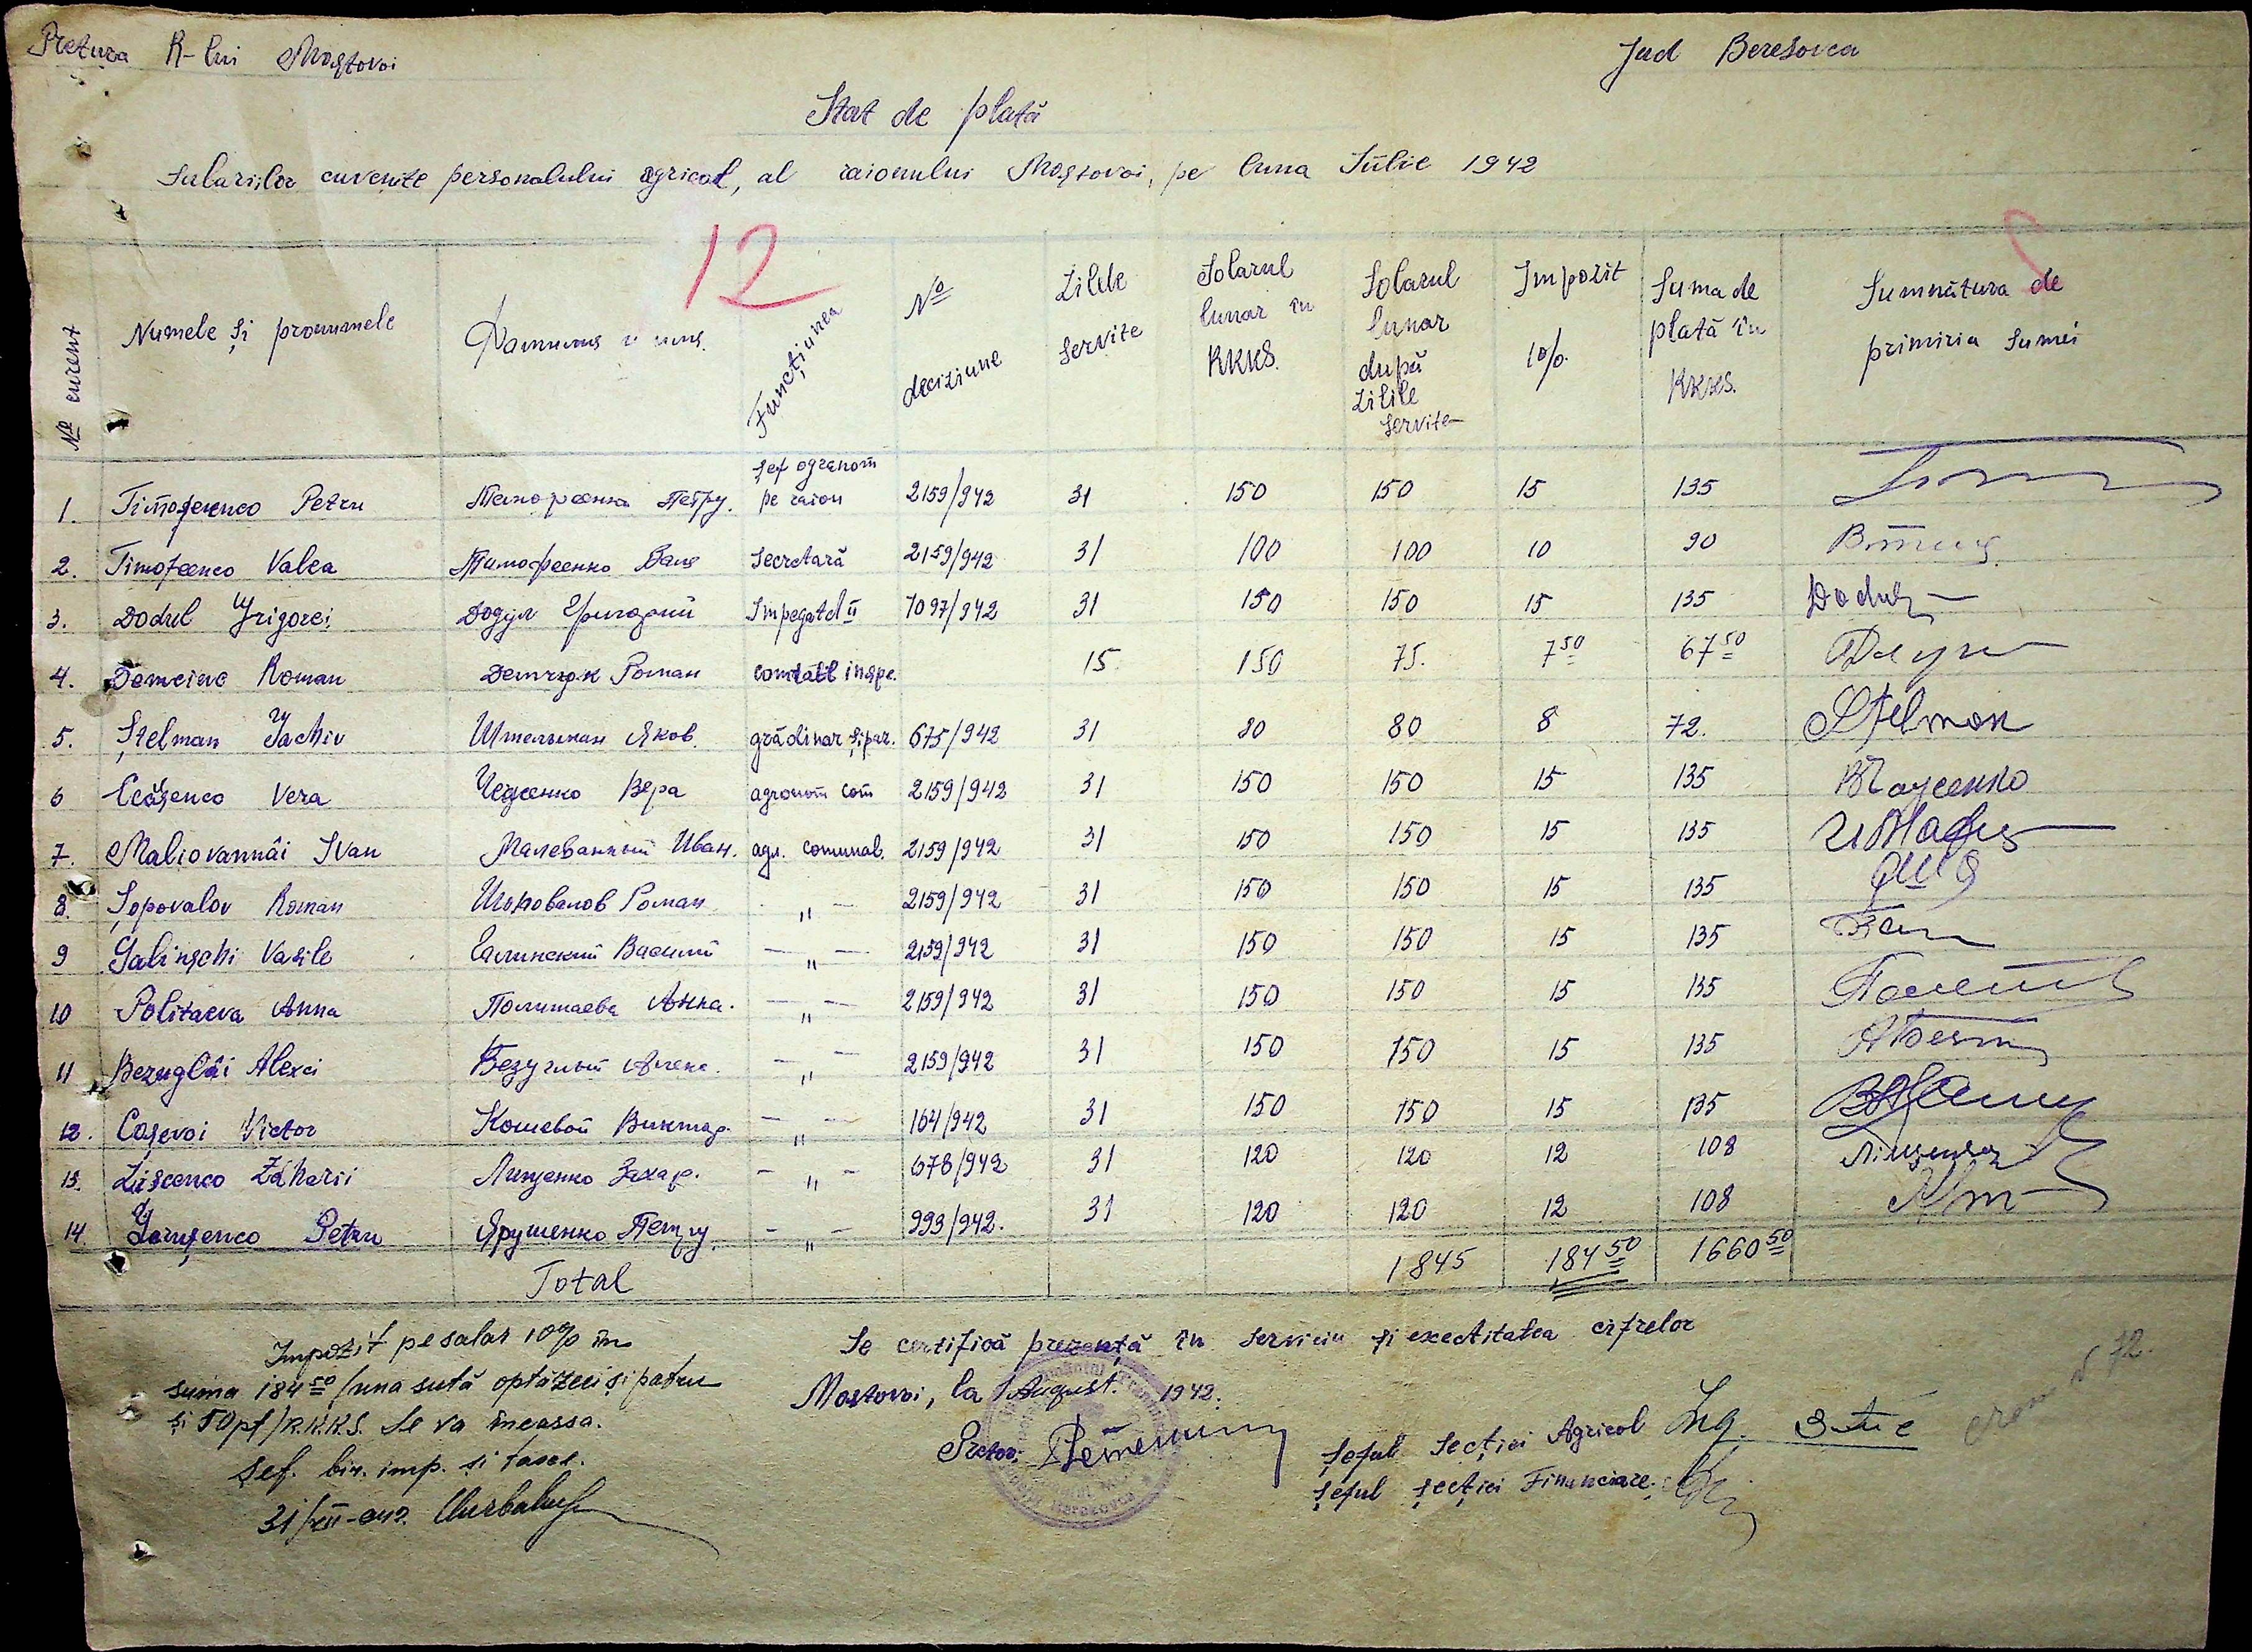 Pretura R-lui Mostovoi
Jud Beresovca
Stat de plată
Salariilor cuvenite personalului agricol, al raionului Mostovoi, pe luna Iulie 1942
12
№ curent | Numele și pronumele | Фамилия и имя. | Funcțiunea | № deciziune | Zilele servite | Solarul lunar în RKKS. | Solarul lunar după zilile servite | Impozit 10% | Suma de plată în RKKS. | Sumnătura de primiria sumei
1. Timofeenco Petru | Тимофеенко Петру. | șef ogronom pe raion | 2159/942 | 31 | 150 | 150 | 15 | 135
2. Timofeenco Valea | Тимофеенко Валя | Secretară | 2159/942 | 31 | 100 | 100 | 10 | 90
3. Dodul Grigorei | Додул Григорий | Impegatd II | 1097/942 | 31 | 150 | 150 | 15 | 135 | Dodul
4. Demciuc Roman | Демчук Роман | contabil inspe. | 15 | 150 | 75. | 7 50 | 67 50
5. Ștelman Iachiv | Штельман Яков. | grădinar șipar. | 675/942 | 31 | 80 | 80 | 8 | 72. | Ștelman
6 Ceașenco Vera | Чедеенко Вера | agronom com | 2159/942 | 31 | 150 | 150 | 15 | 135
7. Maliovannâi Ivan | Малеванный Иван. | agr. comunal. | 2159/942 | 31 | 150 | 150 | 15 | 135
8. Șopovalov Roman | Шоповалов Роман | — " — | 2159/942 | 31 | 150 | 150 | 15 | 135
9 Galinschi Vasile | Галинский Василий | — " — | 2159/942 | 31 | 150 | 150 | 15 | 135
10 Politaeva Anna | Политаева Анна. | — " — | 2159/942 | 31 | 150 | 150 | 15 | 135
11 Bezuglâi Alexei | Безуглый Алекс. | — " — | 2159/942 | 31 | 150 | 150 | 15 | 135
12. Coșevoi Victor | Кошевой Виктор. | — " — | 164/942 | 31 | 150 | 150 | 15 | 135
13. Lișcenco Zaharii | Лищенко Захар. | — " — | 678/942 | 31 | 120 | 120 | 12 | 108
14. Iarușenco Petru | Ярушенко Петру. | — " — | 993/942. | 31 | 120 | 120 | 12 | 108
Total | 1845 | 184 50 | 1660 50
Impozit pe salar 10% în
suma 184 50 /una sută optăzeci și patru
și 50 pf/ R.K.K.S. Se va încassa.
Șef. bir. imp. și taxe.
31/VII-942.
Se certifică prezență în serviciu și exectitatea cifrelor
Mostovoi, la 1 August. 1942.
Pretor:
Șeful Secției Agricol Ing.
Șeful secției Financiare.